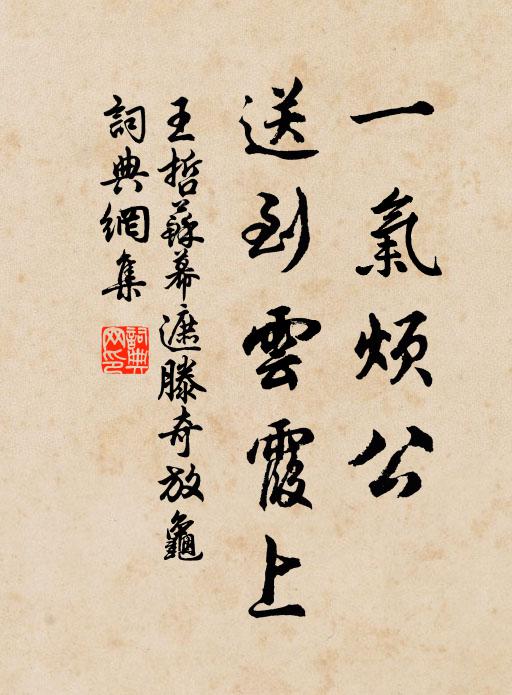 一氣煩公
送到雲霞上
王哲蘇幕遮滕奇放龜
詞典網集
詞典
网印